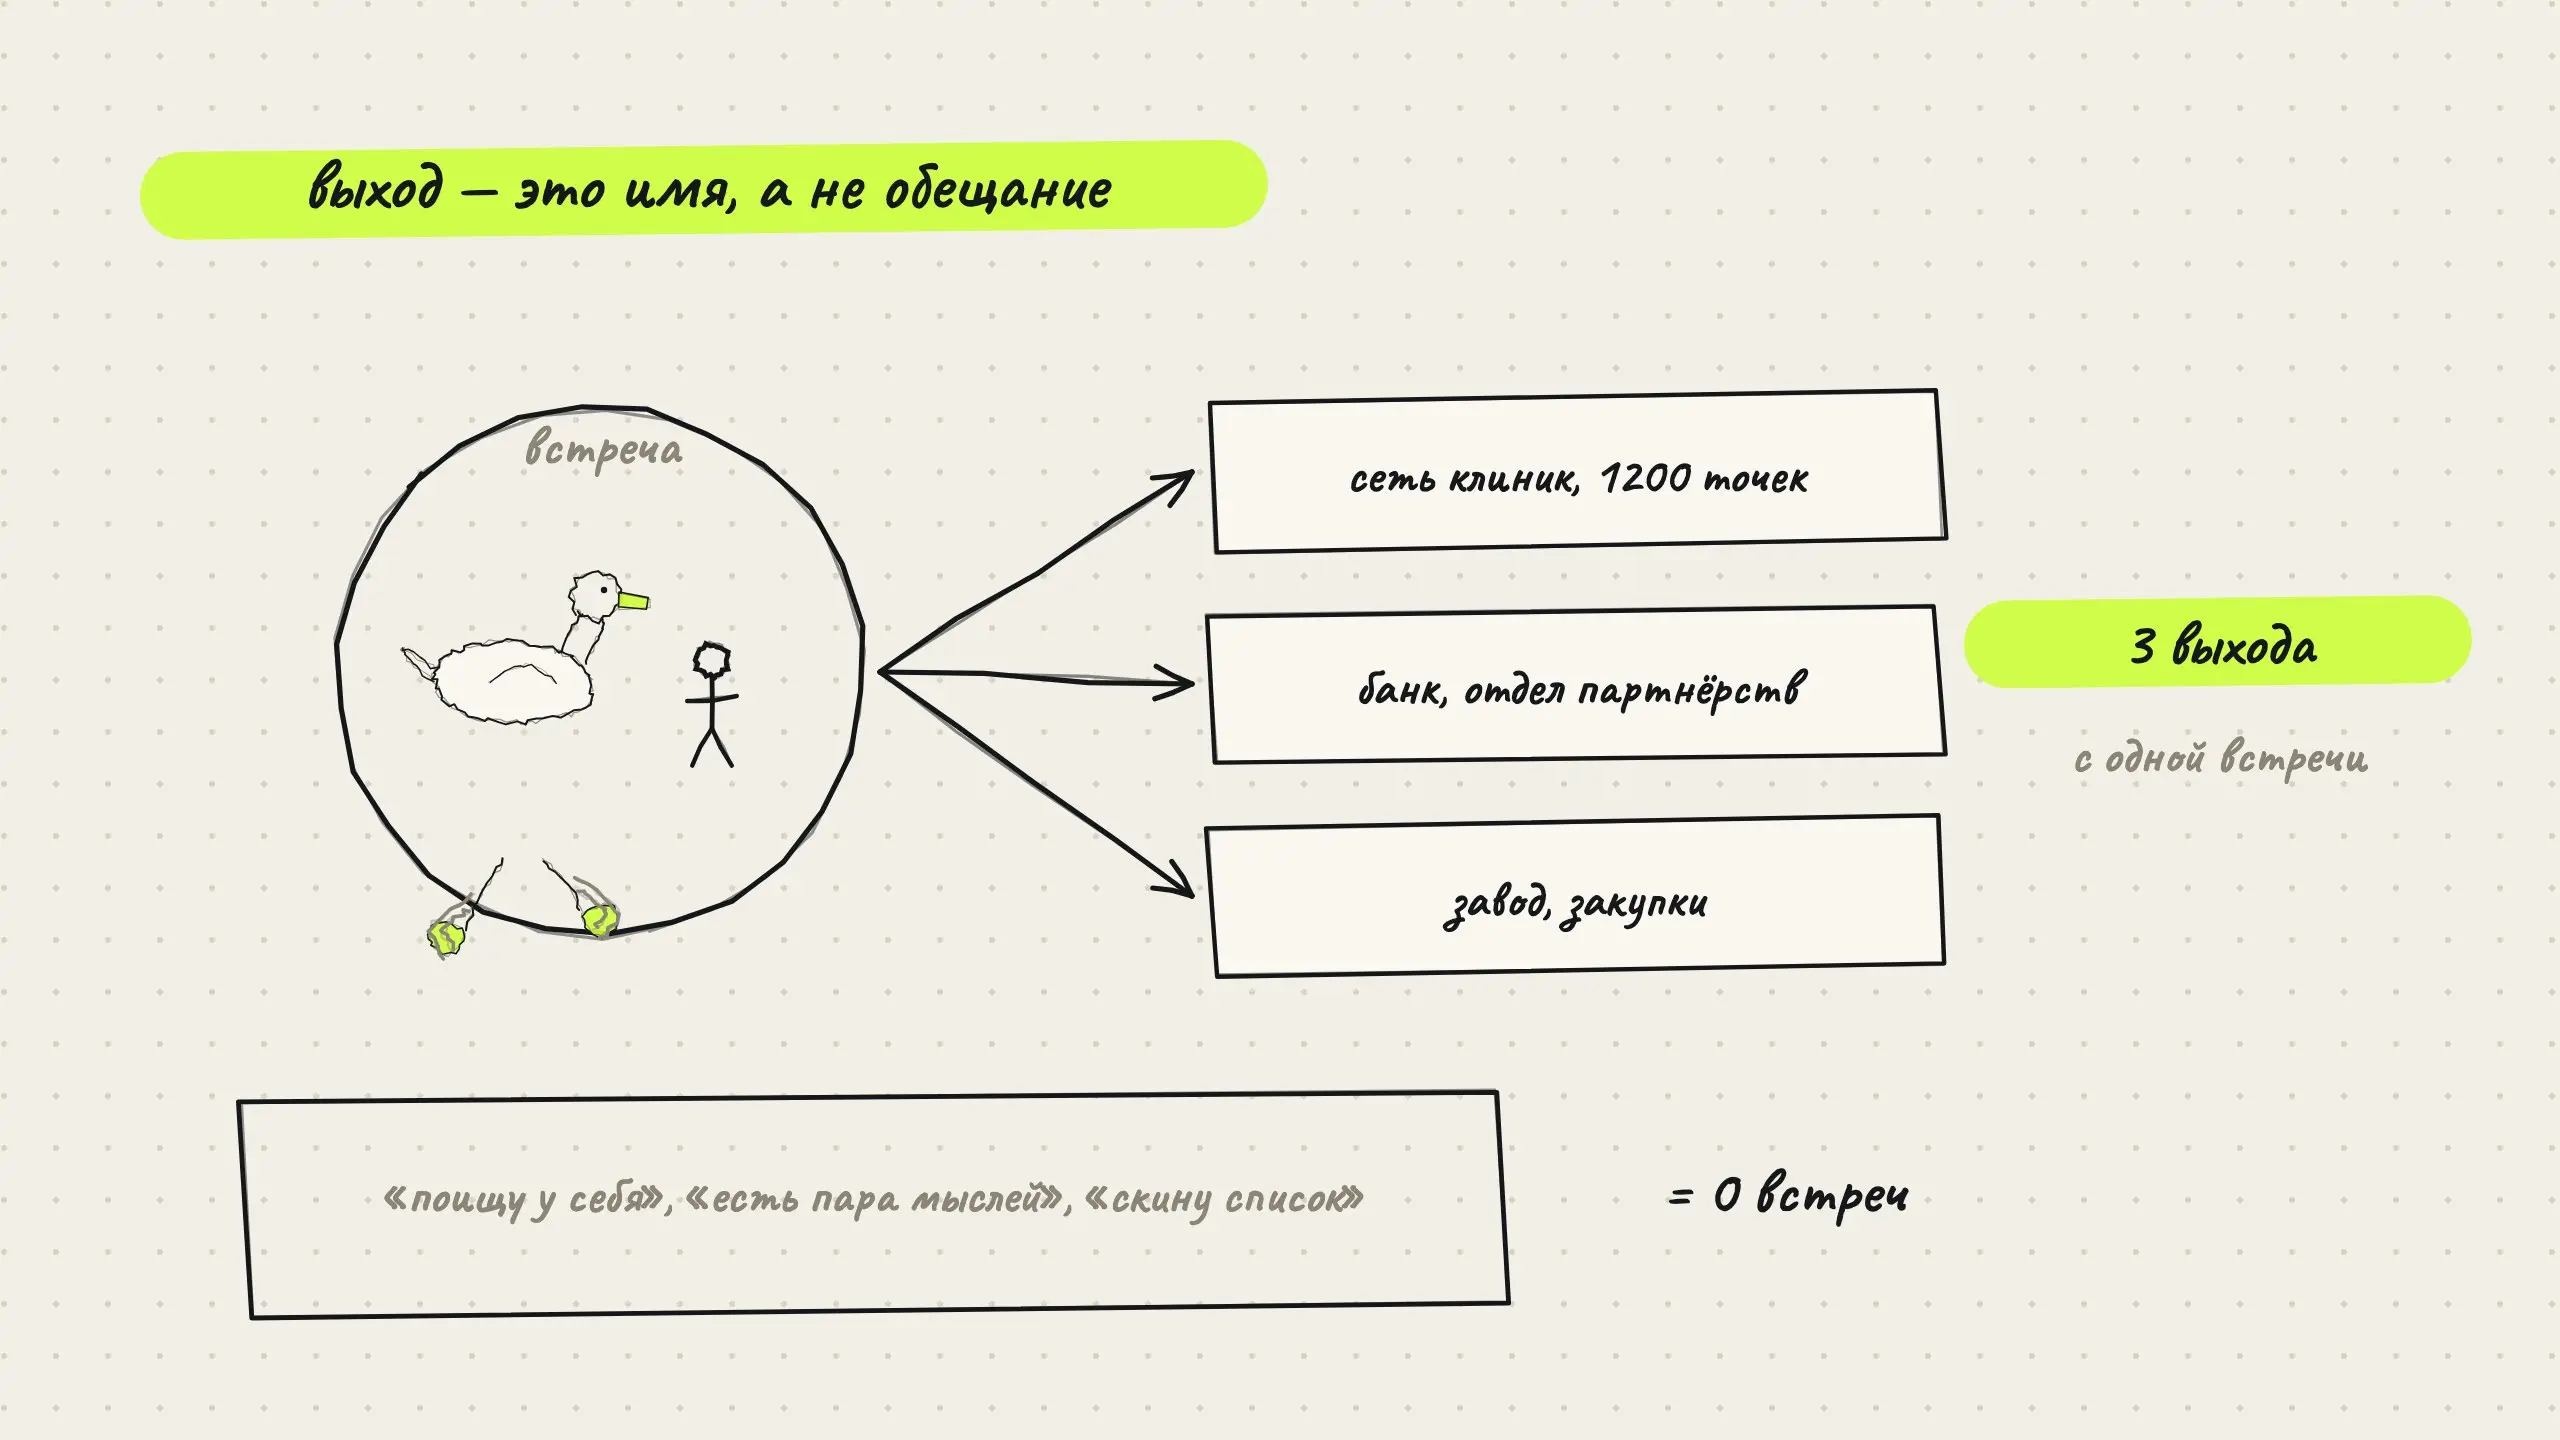 выход — это имя, а не обещание
встреча
сеть клиник, 1200 точек
банк, отдел партнёрств
завод, закупки
3 выхода
с одной встречи
«поищу у себя», «есть пара мыслей», «скину список»
= 0 встреч